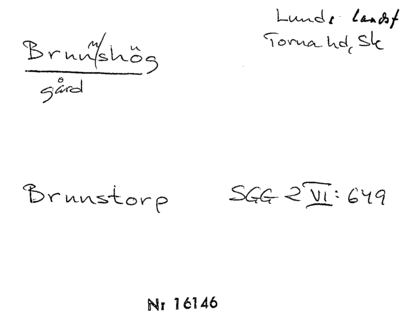 Lunds landsf
Torna hd, Sk
Brunnshög
gård
Brunstorp SGG 2 VI: 649
Nr 16146